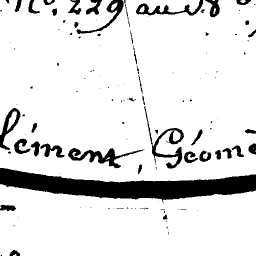 N°. 229 au N8
lément, Géomè